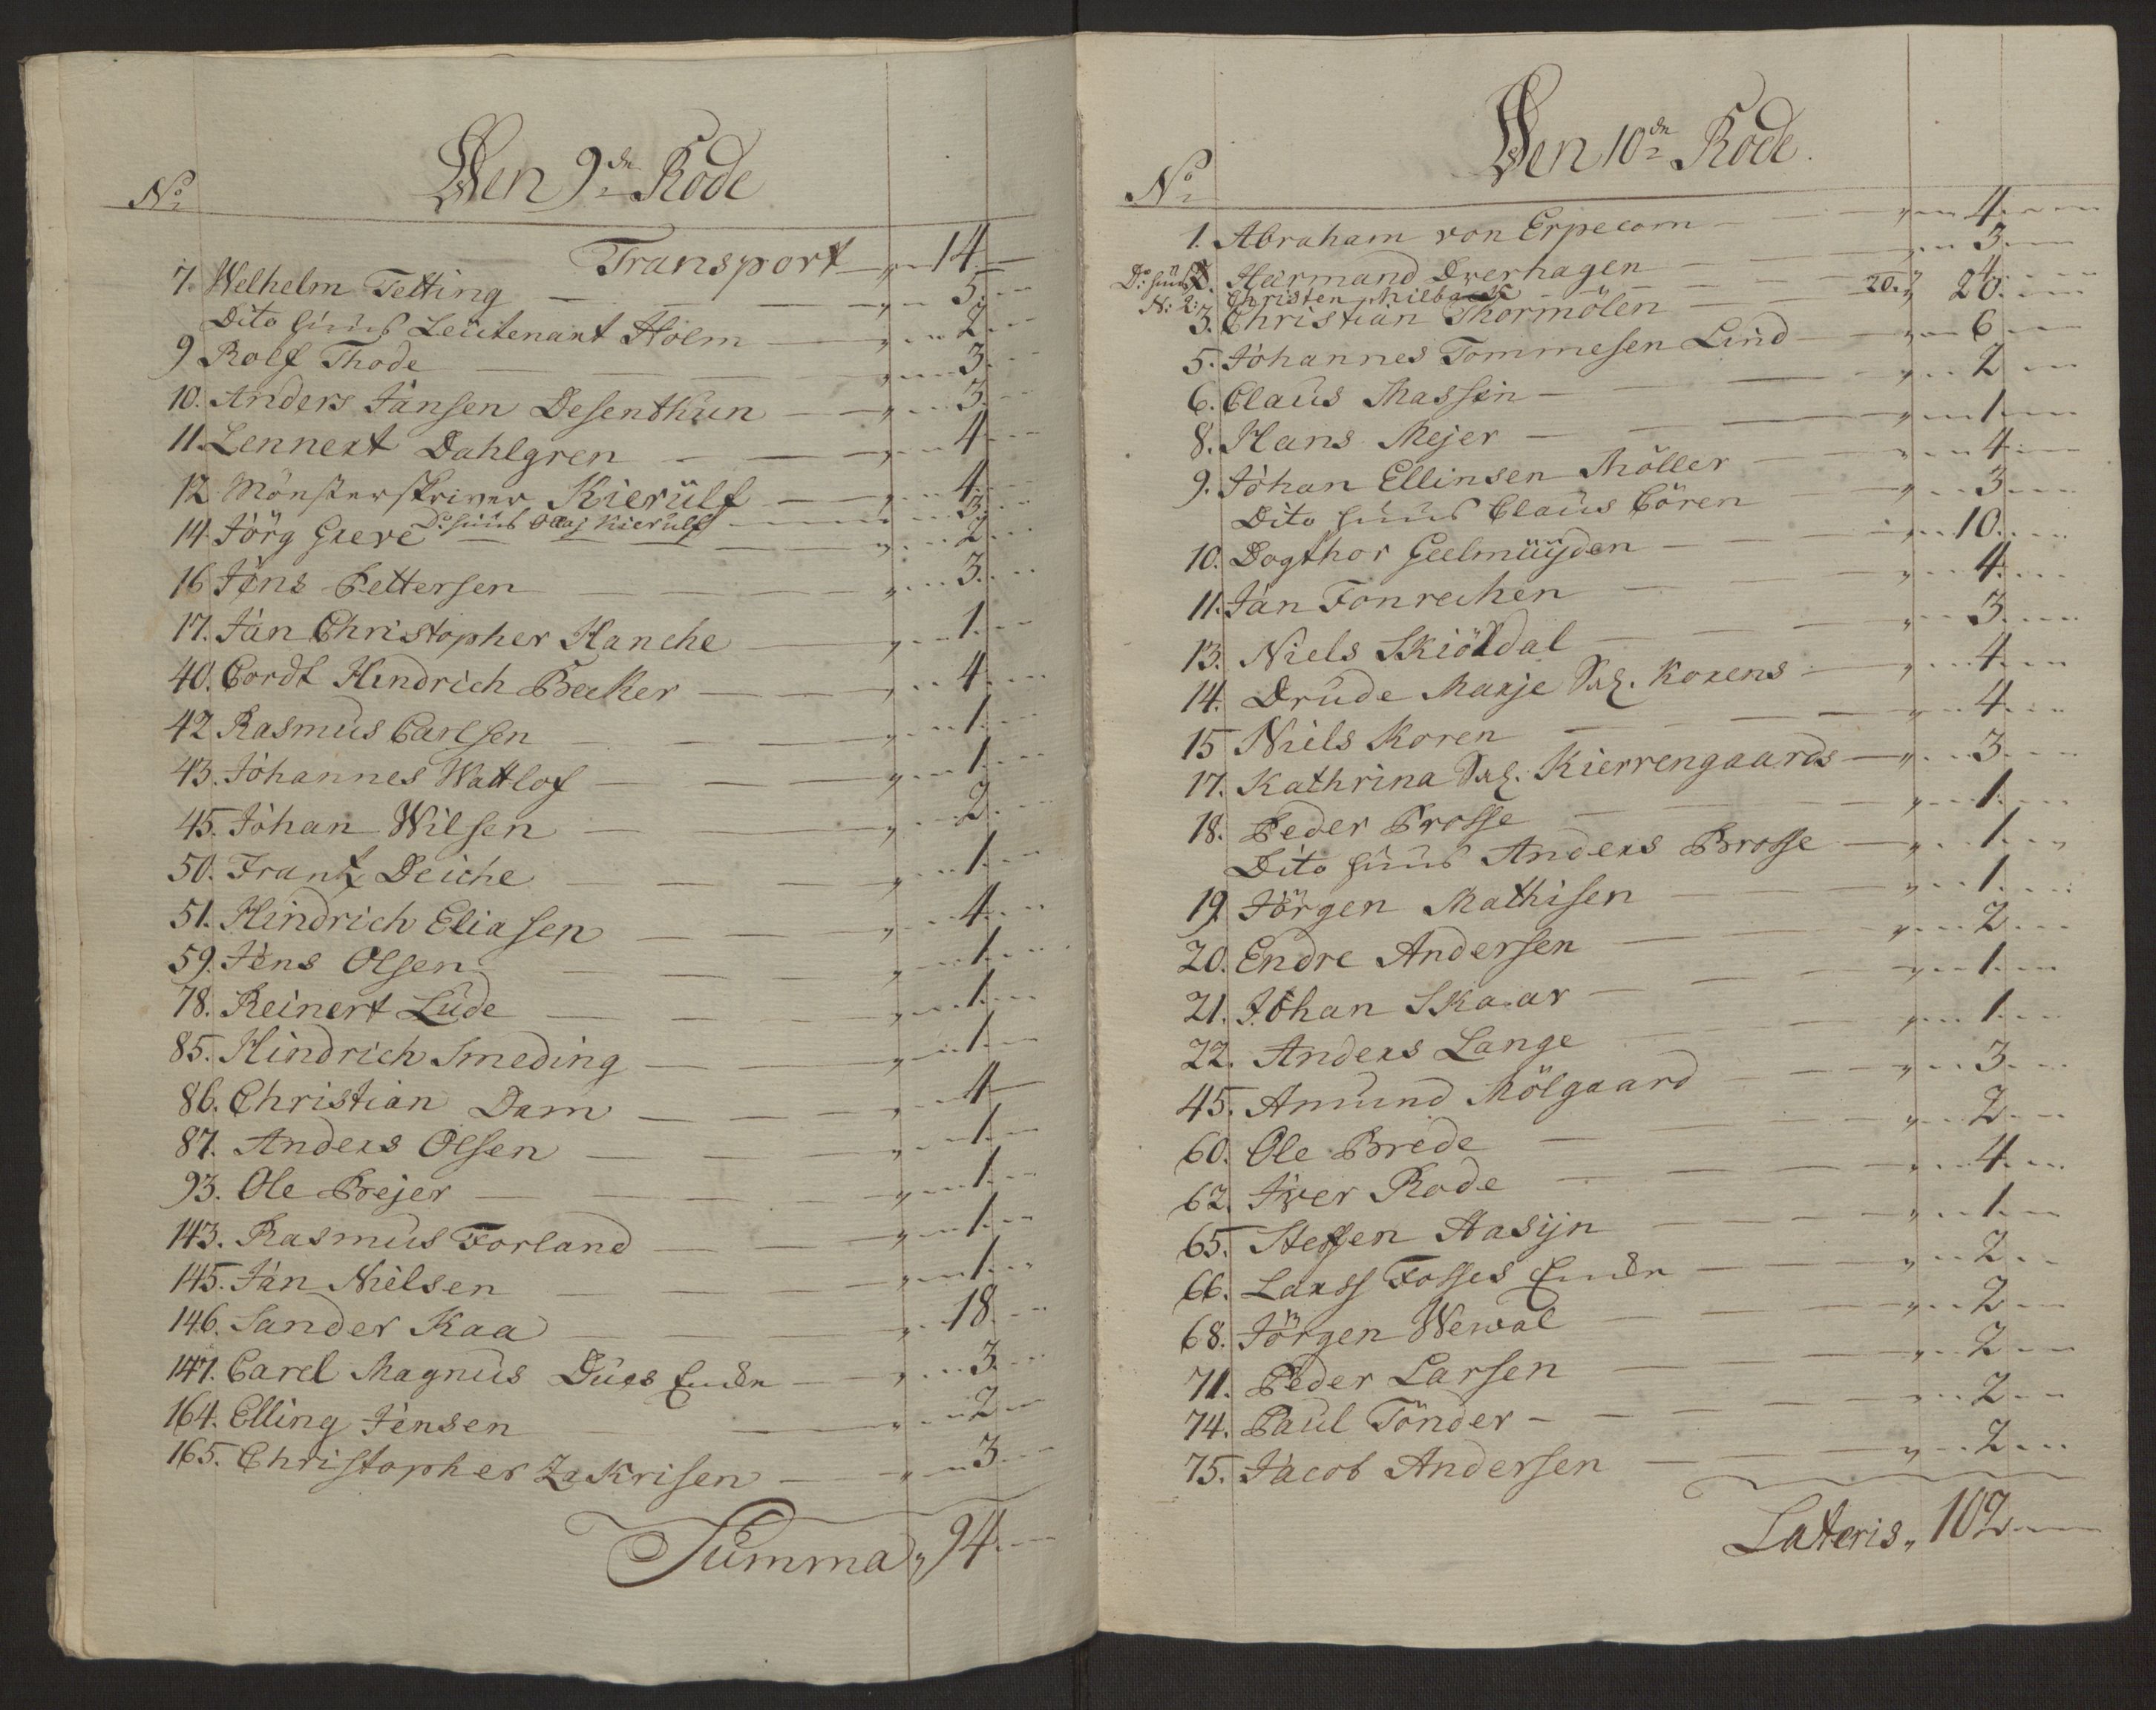 Den 9de Rode
No
Transport „ 14
7. Welhelm Tetting „ 5
Dito huus Leütenant Holm „ 2
9 Rolf Thode „ 3
10. Anders Jansen Desenthun „ 3
11. Lennert Dahlgren „ 4
12 Mönsterskriver Kierülf „ 4
Do huus Olaj Kierulf 3
14. Jörg Greve „ 2
16 Jens Pettersen „ 3
17. Jan Christopher Hanche „ 1
40. Cordt Hindrich Becker „ 4
42 Rasmus Carlsen „ 1
43. Johannes Wattlof „ 1
45. Johan Wilsen „ 2
50. Frantz Deiche „ 1
51. Hindrich Eliasen „ 4
59. Jens Olsen „ 1
78. Reinert Lude „ 1
85. Hindrich Smeding „ 1
86. Christian Dam „ 4
87. Anders Olsen „ 1
93. Ole Brejer „ 1
143. Rasmus Forland „ 1
145. Jan Nielsen „ 1
146. Sander Kaa „ 18
147. Carel Magnus Dues Enke „ 3
164. Elling Jensen „ 2
165. Christopher Zakrisen „ 3
Summa „ 94
Den 10de Rode.
No
1. Abraham von Erpecom „ 4
2. Harmand Dverhagen „ 3
Do huus No 2: Christen Milback 4
3. Christian Thormölen 20. „ 20
5. Johannes Tommesen Lind „ 6
6. Claus Massen „ 2
8. Hans Mejer „ 1
9. Johan Ellinsen Möller „ 4
Dito huus Claus Cören „ 3
10. Dogthor Geelmüÿden „ 10
11. Jan Fonrechen „ 4
13. Niels Skiöldal „ 3
14. Drude Marje Sal. Korens „ 4
15 Niels Koren „ 4
17. Kathrina Sal. Kierrengaards „ 3
18. Peder Brosse „ 1
Dito huus Anders Brosse „ 1
19 Jörgen Mathisen „ 1
20. Endre Andersen „ 2
21. Johan Skaar „ 1
22. Anders Lange „ 1
45. Amund Mölgaard „ 3
60. Ole Brede „ 2
62. Iver Rode „ 4
65. Steffen Aasÿn „ 1
66. Larss Fosses Enke „ 2
68. Jörgen Wewal „ 2
71. Peder Larsen „ 2
74. Paul Tönder „ 2
75. Jacob Andersen „ 2
Lateris „ 102